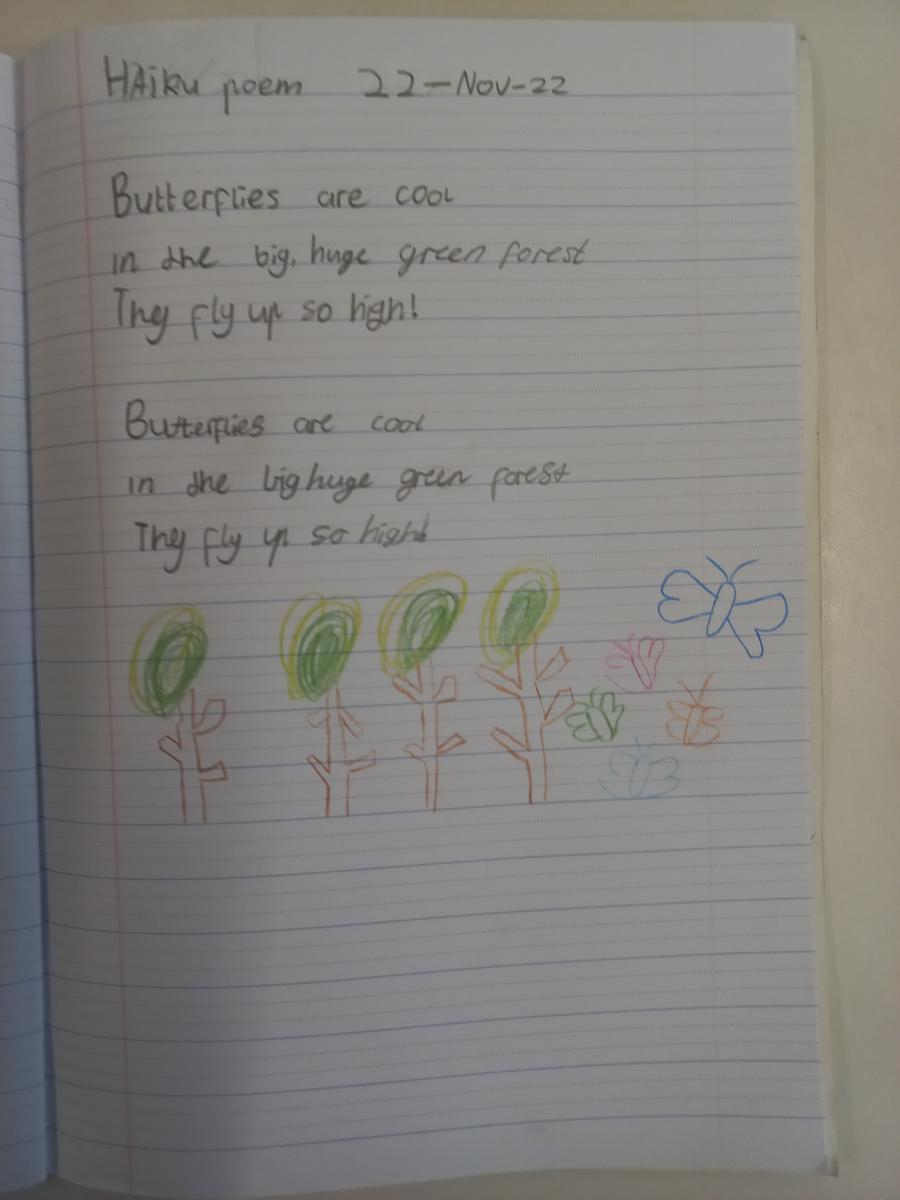 HAiku poem 22-Nov-22
Butterflies are cool
in the big, huge green forest
They fly up so high!
Butterflies are cool
in the big huge green forest
They fly up so high!